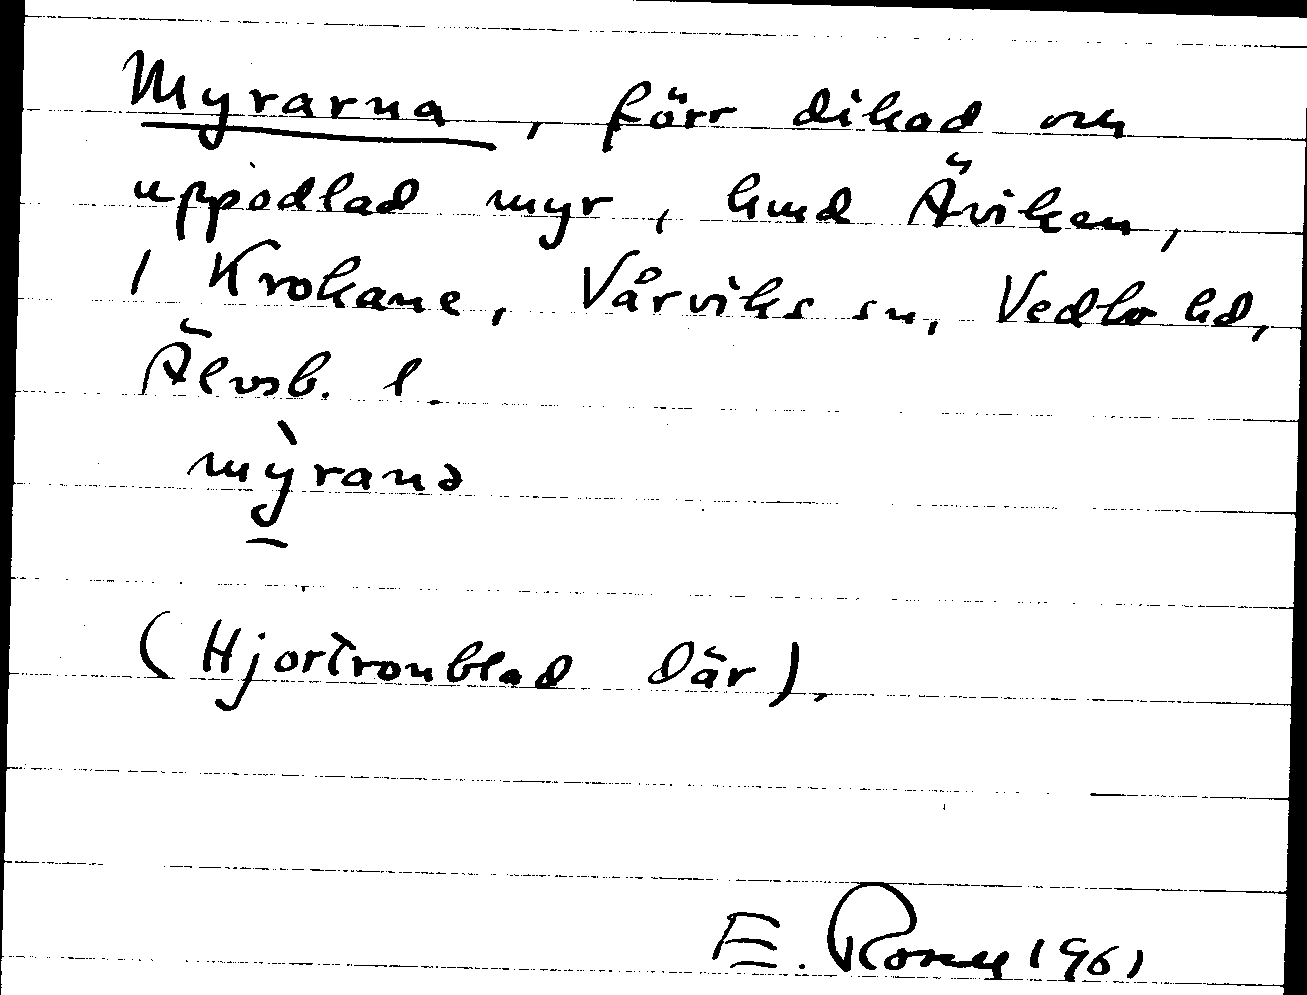 Myrarna, förr dikad och
uppodlad myr, hmd Äviken,
1 Krokane, Vårviks sn, Vedbo hd,
Älvsb. l.
mỳ̱ranə
(Hjortronblad där).
E. 1961